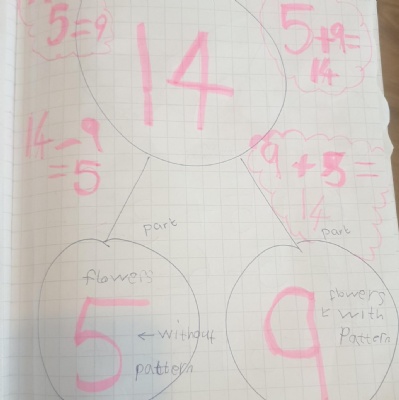 5=9
14
5+9=
14
14-9
=5
9+5=
14
part
part
flowers
5
←without
pattern
flowers
9
with
Pattern